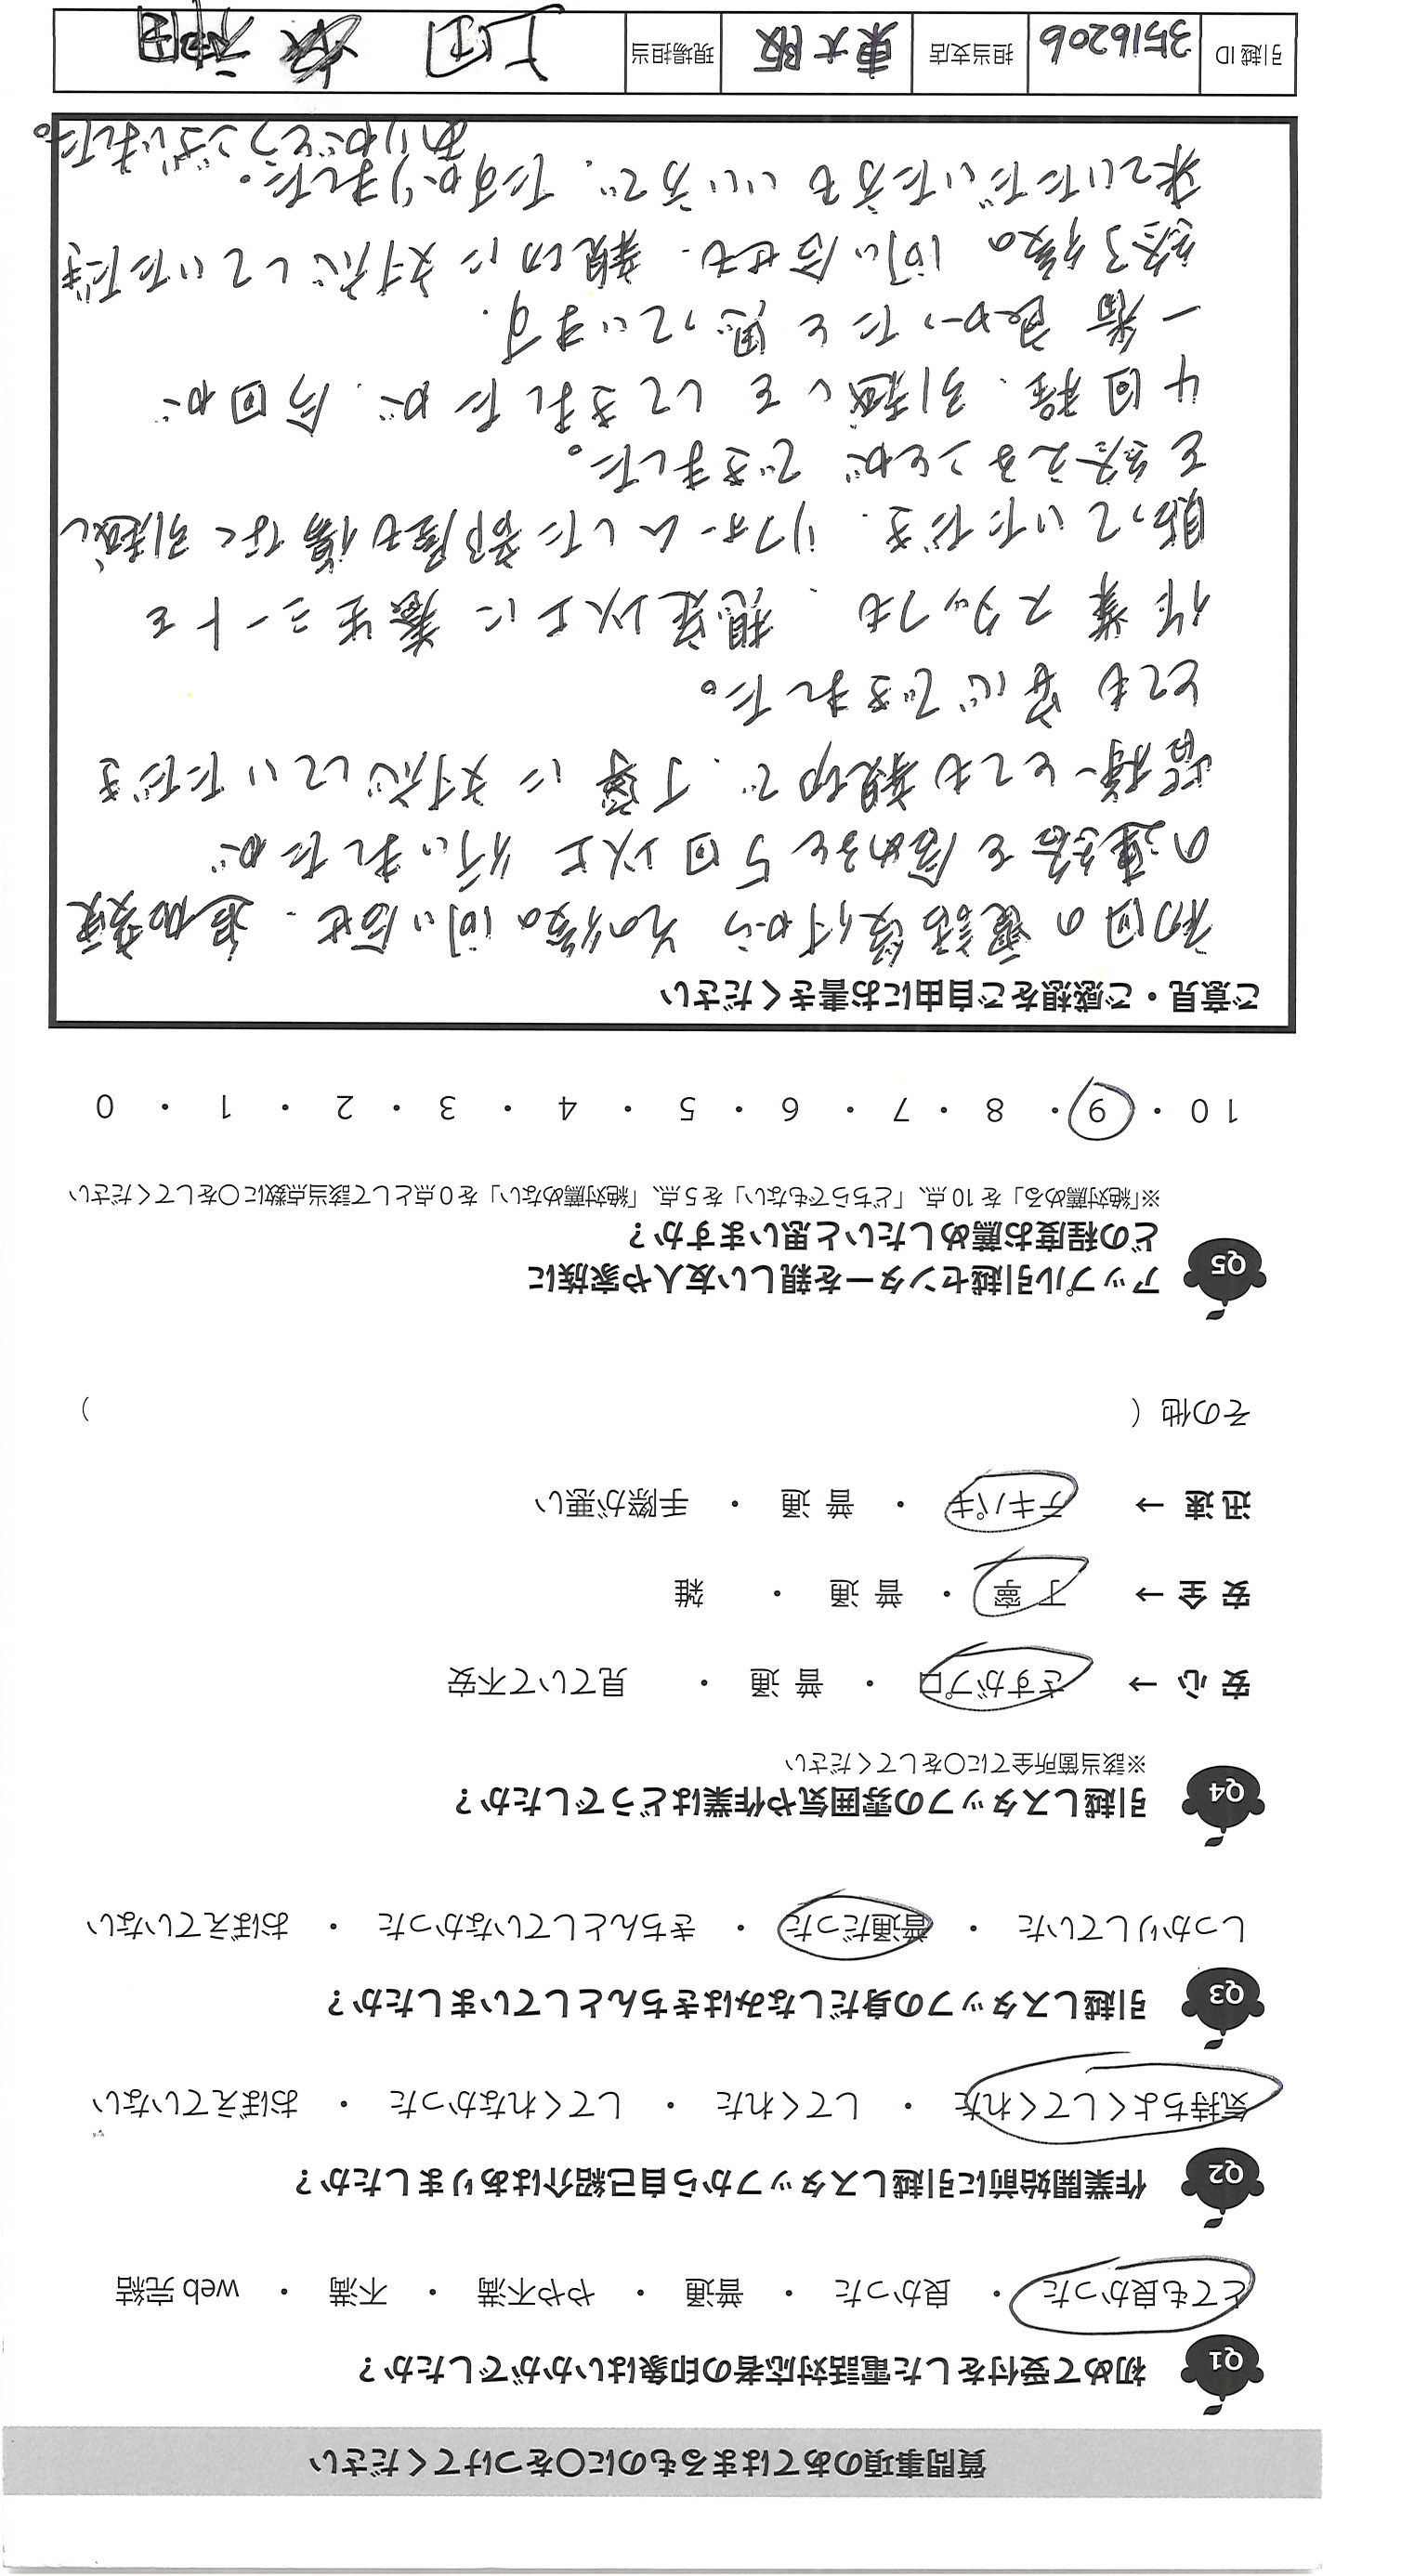 質問事項のあてはまるものに〇をつけてください
Q1 初めて受付をした電話対応者の印象はいかがでしたか？
とても良かった ・ 良かった ・ 普通 ・ やや不満 ・ 不満 ・ web 完結
Q2 作業開始前に引越しスタッフから自己紹介はありましたか？
気持ちよくしてくれた ・ してくれた ・ してくれなかった ・ おぼえていない
Q3 引越しスタッフの身だしなみはきちんとしていましたか？
しっかりしていた ・ 普通だった ・ きちんとしていなかった ・ おぼえていない
Q4 引越しスタッフの雰囲気や作業はどうでしたか？
※該当箇所全てに〇をしてください
安 心 → さすがプロ ・ 普 通 ・ 見ていて不安
安 全 → 丁 寧 ・ 普 通 ・ 雑
迅 速 → テキパキ ・ 普 通 ・ 手際が悪い
その他（ ）
Q5 アップル引越センターを親しい友人や家族に
どの程度お薦めしたいと思いますか？
※「絶対薦める」を 10 点、「どちらでもない」を 5 点、「絶対薦めない」を 0 点として該当点数に〇をしてください
10 ・ 9 ・ 8 ・ 7 ・ 6 ・ 5 ・ 4 ・ 3 ・ 2 ・ 1 ・ 0
ご意見・ご感想をご自由にお書きください
初回の電話受付から その後の問い合せ、追加変更
の連絡を含めると5回以上行いましたが
皆様とても親切で、丁寧に対応していただき
とても安心できました。
作業スタッフも、想定以上に養生シートを
貼っていただき、リフォームした部屋も傷なく引越し
を終えることができました。
4回程、引越しをしてきましたが、今回が
一番良かったと思っています。
終了後の問い合せも、親切に対応していただき
来ていただいた方もいい方で、たすかりました。
ありがとうございました。
引越 ID 3516206 担当支店 東大阪 現場担当 上田 神田